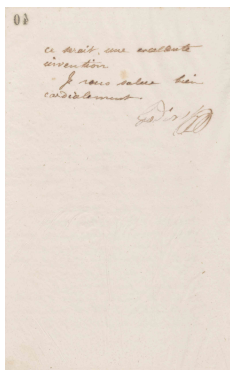 ce serait une excellente
invention
Je vous salue bien
cordialement